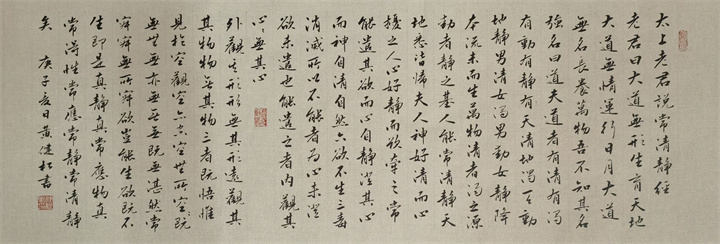 太上老君說常清靜經
老君曰大道無形生育天地
大道無情運行日月大道
無名長養萬物吾不知其名
強名曰道夫道者有清有濁
有動有靜天清地濁天動
地靜男清女濁男動女靜降
本流末而生萬物清者濁之源
動者靜之基人能常清靜天
地悉皆歸夫人神好清而心
擾之人心好靜而欲牽之常
能遣其欲而心自靜澄其心
而神自清自然六欲不生三毒
消滅所以不能者為心未澄
欲未遣也能遣之者內觀其
心心無其心
外觀其形形無其形遠觀其
其物物無其物三者既悟惟
見於空觀空亦空無所空既
無無無亦無無既無湛然常
寂寂無所寂欲豈能生欲既不
生即是真靜真常應物真
常得性常應常靜常清靜
矣 庚子 日黃 書